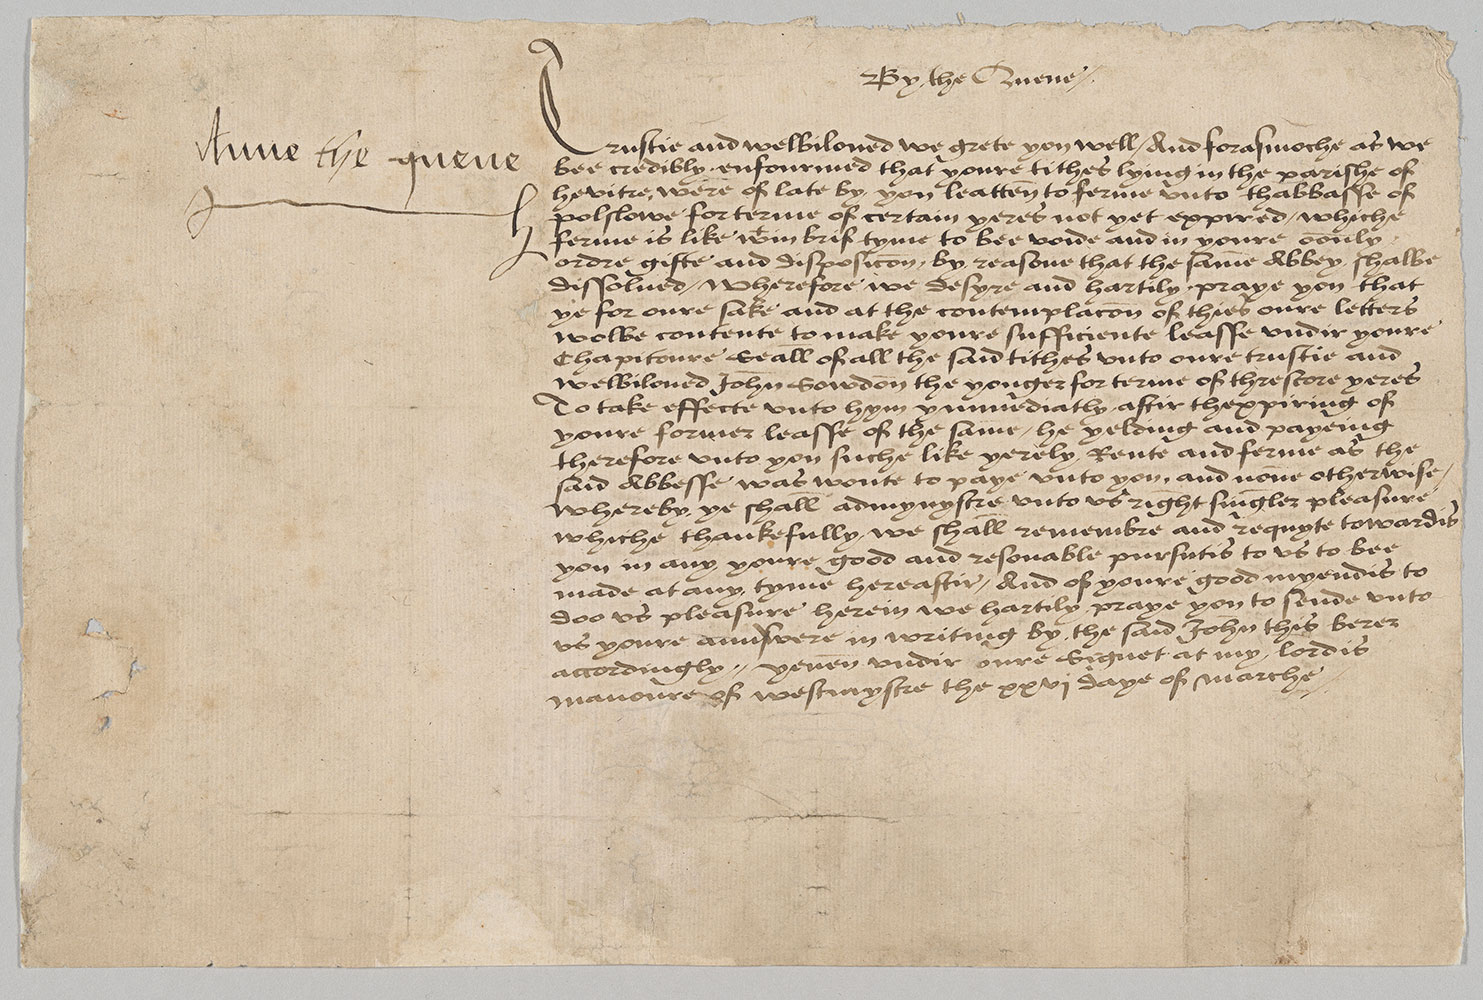 By the Quene
Anne the quene
Trustie and welbiloued we grete you well / And forasmoche as we
bee credibly enfourmed that youre tithes lying in the parishe of
hevitre, were of late by you leatten to ferme vnto thabbasse of
polslowe for terme of certain yeres not yet expired / whiche
ferme is like wtin brif tyme to bee voide and in youre oonly
ordre gifte and disposicon, by reasone that the same Abbey shalbe
dissolued / Wherefore we desyre and hartily praye you that
ye for oure sake and at the contemplacon of thies oure letters
wolbe contente to make youre sufficiente leasse vndir youre
Chapitoure Seall of all the said tithes vnto oure trustie and
welbiloued John Sowdon the yonger for terme of threscore yeres
To take effecte vnto hym ymmediatly aftir thexpiring of
youre former leasse of the same / he yelding and payeing
therefore vnto you suche like yerely Rente and ferme as the
said Abbesse was wonte to paye vnto you, and none otherwise /
whereby ye shall admynystre vnto vs right singler pleasure
whiche thankefully we shall remembre and requyte towardis
you in any youre good and resonable pursutis to vs to bee
made at any tyme hereaftir / And of youre good myendis to
doo vs pleasure herein we hartily praye you to sende vnto
vs youre aunswere in writing by the said John this berer
accordingly // yeuen vndir oure Signet at my lordis
manoure of westmystre the xxvj daye of Marche /